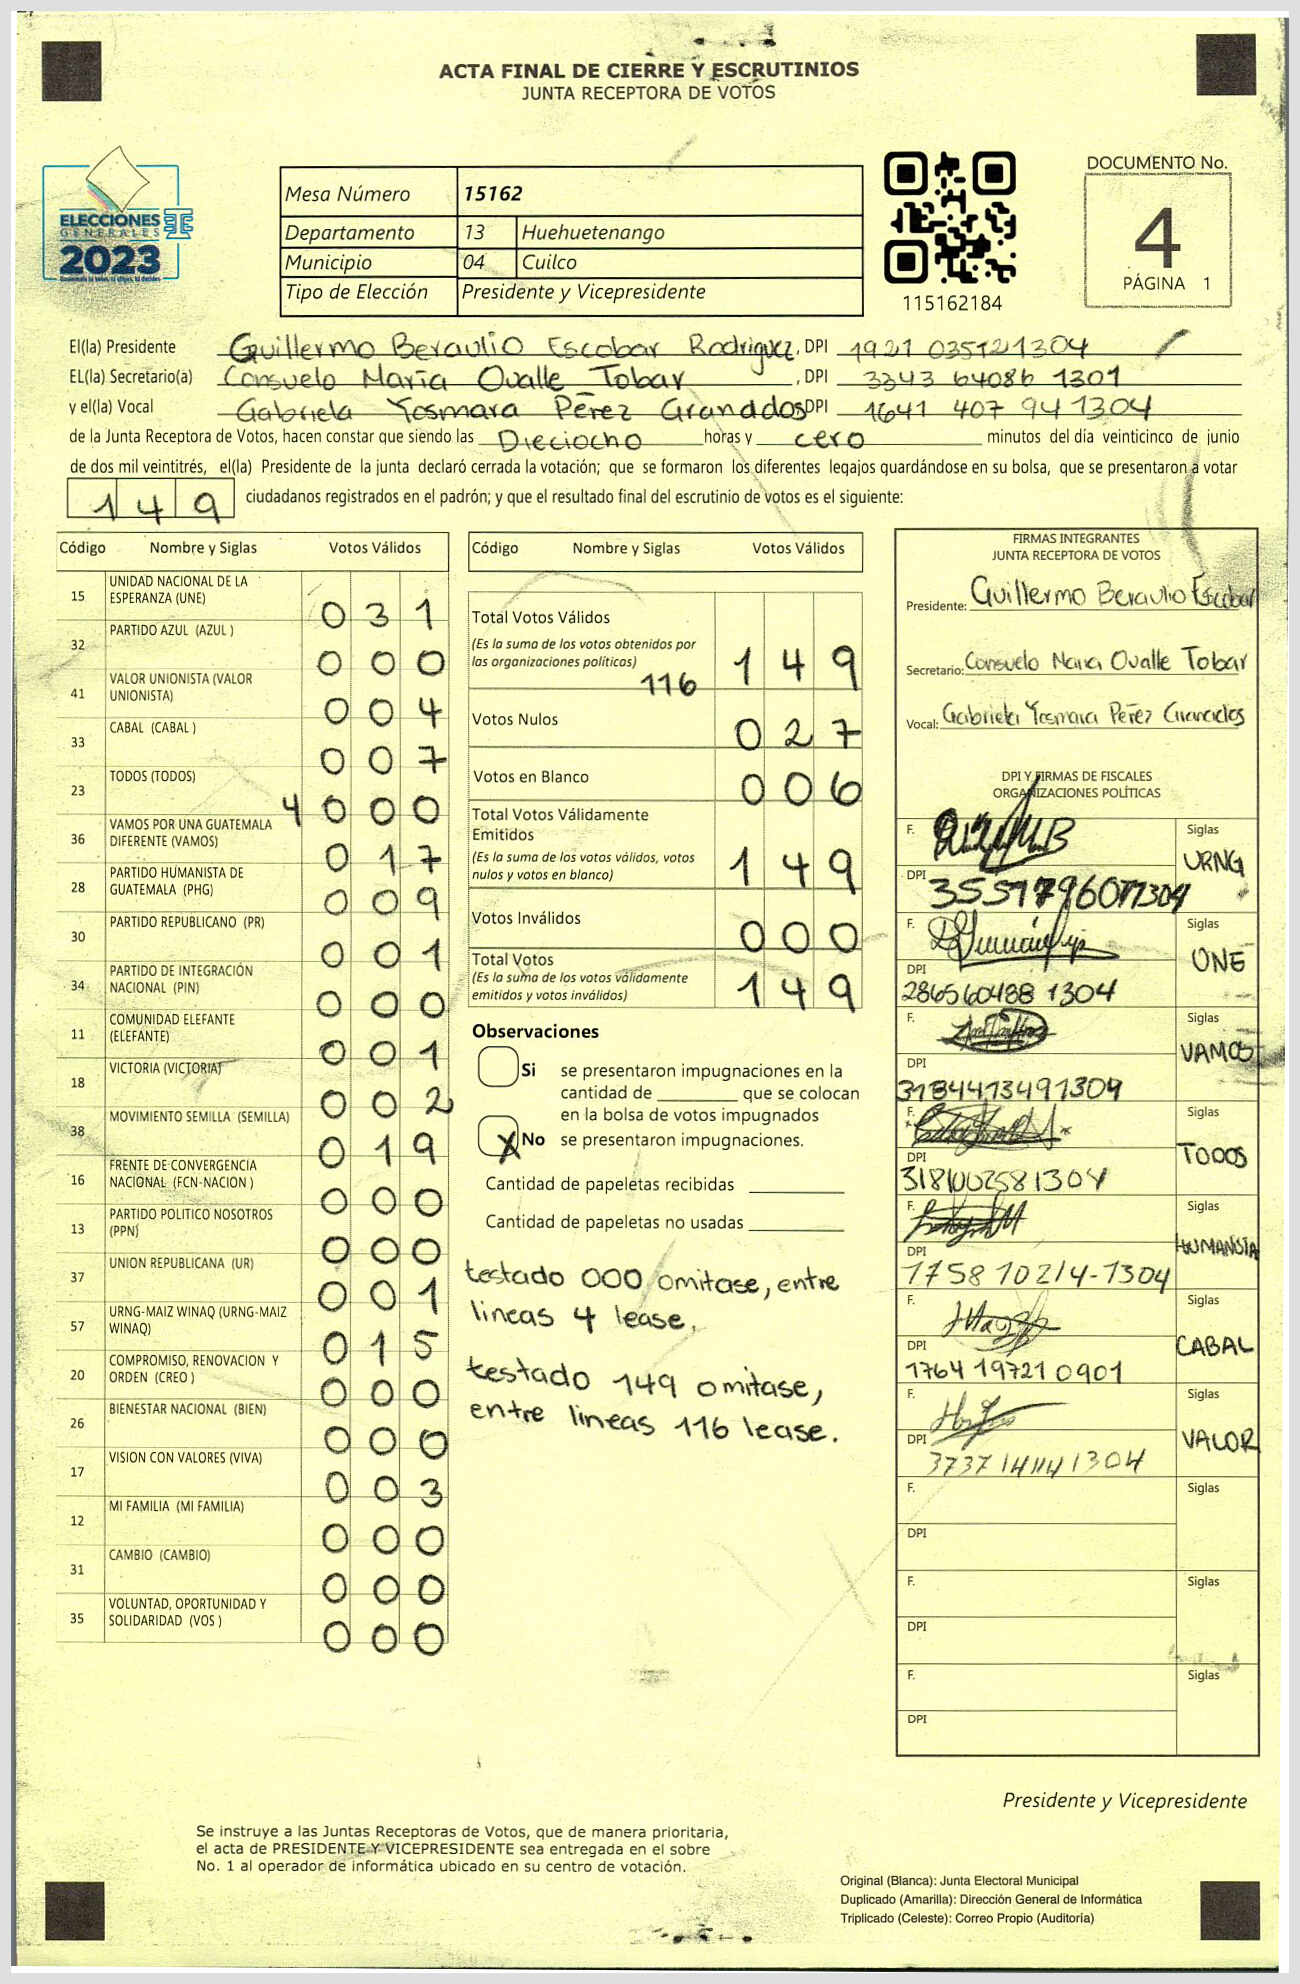 ACTA FINAL DE CIERRE Y ESCRUTINIOS
JUNTA RECEPTORA DE VOTOS
ELECCIONES
GENERALES
2023
Mesa Número 15162
Departamento 13 Huehuetenango
Municipio 04 Cuilco
Tipo de Elección Presidente y Vicepresidente
115162184
DOCUMENTO No.
4
PÁGINA 1
El(la) Presidente Guillermo Beraulio Escobar Rodriguez, DPI 1921 03512 1304
EL(la) Secretario(a) Consuelo Maria Ovalle Tobar, DPI 3343 64086 1301
y el(la) Vocal Gabriela Yosmara Pérez Granddos DPI 1641 407 94 1304
de la Junta Receptora de Votos, hacen constar que siendo las Dieciocho horas y cero minutos del día veinticinco de junio
de dos mil veintitrés, el(la) Presidente de la junta declaró cerrada la votación; que se formaron los diferentes legajos guardándose en su bolsa, que se presentaron a votar
149 ciudadanos registrados en el padrón; y que el resultado final del escrutinio de votos es el siguiente:
Código Nombre y Siglas Votos Válidos
15 UNIDAD NACIONAL DE LA ESPERANZA (UNE) 031
32 PARTIDO AZUL (AZUL ) 000
41 VALOR UNIONISTA (VALOR UNIONISTA) 004
33 CABAL (CABAL ) 007
23 TODOS (TODOS) 4 000
36 VAMOS POR UNA GUATEMALA DIFERENTE (VAMOS) 017
28 PARTIDO HUMANISTA DE GUATEMALA (PHG) 009
30 PARTIDO REPUBLICANO (PR) 001
34 PARTIDO DE INTEGRACIÓN NACIONAL (PIN) 000
11 COMUNIDAD ELEFANTE (ELEFANTE) 001
18 VICTORIA (VICTORIA) 002
38 MOVIMIENTO SEMILLA (SEMILLA) 019
16 FRENTE DE CONVERGENCIA NACIONAL (FCN-NACION ) 000
13 PARTIDO POLITICO NOSOTROS (PPN) 000
37 UNION REPUBLICANA (UR) 001
57 URNG-MAIZ WINAQ (URNG-MAIZ WINAQ) 015
20 COMPROMISO, RENOVACION Y ORDEN (CREO ) 000
26 BIENESTAR NACIONAL (BIEN) 000
17 VISION CON VALORES (VIVA) 003
12 MI FAMILIA (MI FAMILIA) 000
31 CAMBIO (CAMBIO) 000
35 VOLUNTAD, OPORTUNIDAD Y SOLIDARIDAD (VOS ) 000
Código Nombre y Siglas Votos Válidos
Total Votos Válidos
(Es la suma de los votos obtenidos por
las organizaciones políticas)
116 149
Votos Nulos 027
Votos en Blanco 006
Total Votos Válidamente
Emitidos
(Es la suma de los votos válidos, votos
nulos y votos en blanco) 149
Votos Inválidos 000
Total Votos
(Es la suma de los votos válidamente
emitidos y votos inválidos) 149
Observaciones
Si se presentaron impugnaciones en la
cantidad de ________ que se colocan
en la bolsa de votos impugnados
X No se presentaron impugnaciones.
Cantidad de papeletas recibidas
Cantidad de papeletas no usadas
testado 000 omitase, entre
lineas 4 lease.
testado 149 omitase,
entre lineas 116 lease.
FIRMAS INTEGRANTES
JUNTA RECEPTORA DE VOTOS
Presidente: Guillermo Beraulio Escobar
Secretario: Consuelo Maria Ovalle Tobar
Vocal: Gabriela Yosmara Pérez Granddos
DPI Y FIRMAS DE FISCALES
ORGANIZACIONES POLÍTICAS
F. Siglas URNG
DPI
F. Siglas UNE
DPI 286560488 1304
F. Siglas VAMOS
DPI 3184413491304
F. Siglas TODOS
DPI 3181002581304
F. Siglas HUMANISTA
DPI 1758 10214-1304
F. Siglas CABAL
DPI 1764 19721 0901
F. Siglas VALOR
DPI
F. Siglas
DPI
F. Siglas
DPI
F. Siglas
DPI
Presidente y Vicepresidente
Se instruye a las Juntas Receptoras de Votos, que de manera prioritaria,
el acta de PRESIDENTE Y VICEPRESIDENTE sea entregada en el sobre
No. 1 al operador de informática ubicado en su centro de votación.
Original (Blanca): Junta Electoral Municipal
Duplicado (Amarilla): Dirección General de Informática
Triplicado (Celeste): Correo Propio (Auditoría)